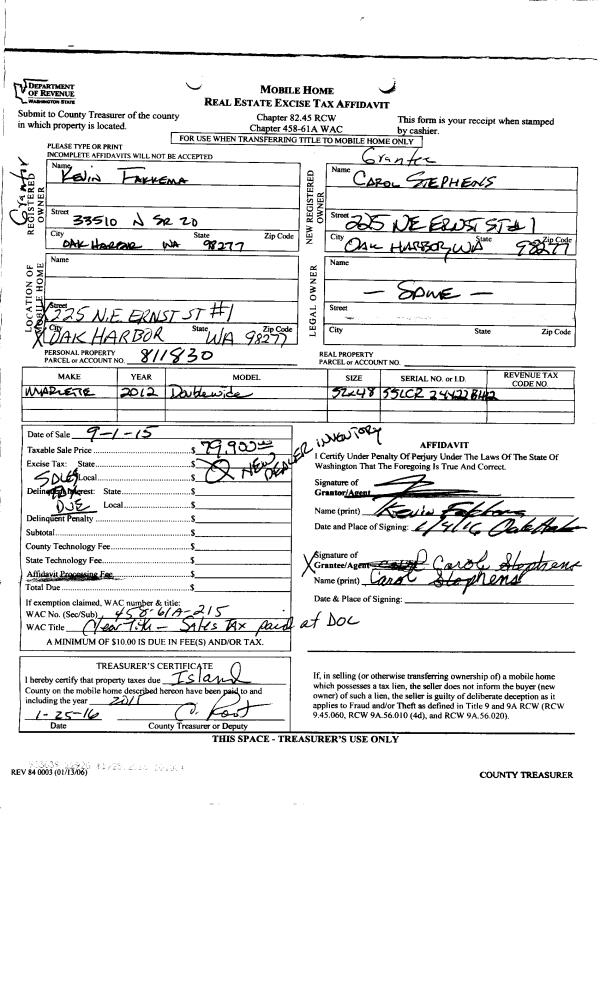 DEPARTMENT
OF REVENUE
WASHINGTON STATE
MOBILE HOME
REAL ESTATE EXCISE TAX AFFIDAVIT
Submit to County Treasurer of the county
in which property is located.
Chapter 82.45 RCW
Chapter 458-61A WAC
This form is your receipt when stamped
by cashier.
FOR USE WHEN TRANSFERRING TITLE TO MOBILE HOME ONLY
PLEASE TYPE OR PRINT
INCOMPLETE AFFIDAVITS WILL NOT BE ACCEPTED
Grantor
REGISTERED
OWNER
Name
KEVIN FAKKEMA
Street
33510 N SR 20
City State Zip Code
OAK HARBOR WA 98277
Grantee
NEW REGISTERED
OWNER
Name
CAROL STEPHENS
Street
225 NE ERNST ST #1
City State Zip Code
OAK HARBOR WA 98277
LOCATION OF
MOBILE HOME
Name
Street
X 225 N.E. ERNST ST #1
City State Zip Code
X OAK HARBOR WA 98277
LEGAL OWNER
Name
— SAME —
Street
City State Zip Code
PERSONAL PROPERTY
PARCEL or ACCOUNT NO. 811830
REAL PROPERTY
PARCEL or ACCOUNT NO.
MAKE YEAR MODEL SIZE SERIAL NO. or I.D. REVENUE TAX
CODE NO.
MARLETE 2012 Doublewide 52x48
Date of Sale 9-1-15
Taxable Sale Price $ 79,900.00
Excise Tax: State $ NEW DEALER INVENTORY
SALES Local $
Delinquent Interest: State $
DUE Local $
Delinquent Penalty $
Subtotal $
County Technology Fee $
State Technology Fee $
Affidavit Processing Fee $
Total Due $
If exemption claimed, WAC number & title:
WAC No. (Sec/Sub) 458-61A-215
WAC Title Clear Title - Sales Tax paid at DOL
A MINIMUM OF $10.00 IS DUE IN FEE(S) AND/OR TAX.
AFFIDAVIT
I Certify Under Penalty Of Perjury Under The Laws Of The State Of
Washington That The Foregoing Is True And Correct.
Signature of
Grantor/Agent
Name (print) Kevin Fakkema
Date and Place of Signing: 1/4/16 Oak Harbor
X Signature of
Grantee/Agent Carol Stephens
Name (print) Carol Stephens
Date & Place of Signing:
TREASURER'S CERTIFICATE
I hereby certify that property taxes due Island
County on the mobile home described hereon have been paid to and
including the year 2015
1-25-16
Date County Treasurer or Deputy
If, in selling (or otherwise transferring ownership of) a mobile home
which possesses a tax lien, the seller does not inform the buyer (new
owner) of such a lien, the seller is guilty of deliberate deception as it
applies to Fraud and/or Theft as defined in Title 9 and 9A RCW (RCW
9.45.060, RCW 9A.56.010 (4d), and RCW 9A.56.020).
THIS SPACE - TREASURER'S USE ONLY
REV 84 0003 (01/13/06)
COUNTY TREASURER